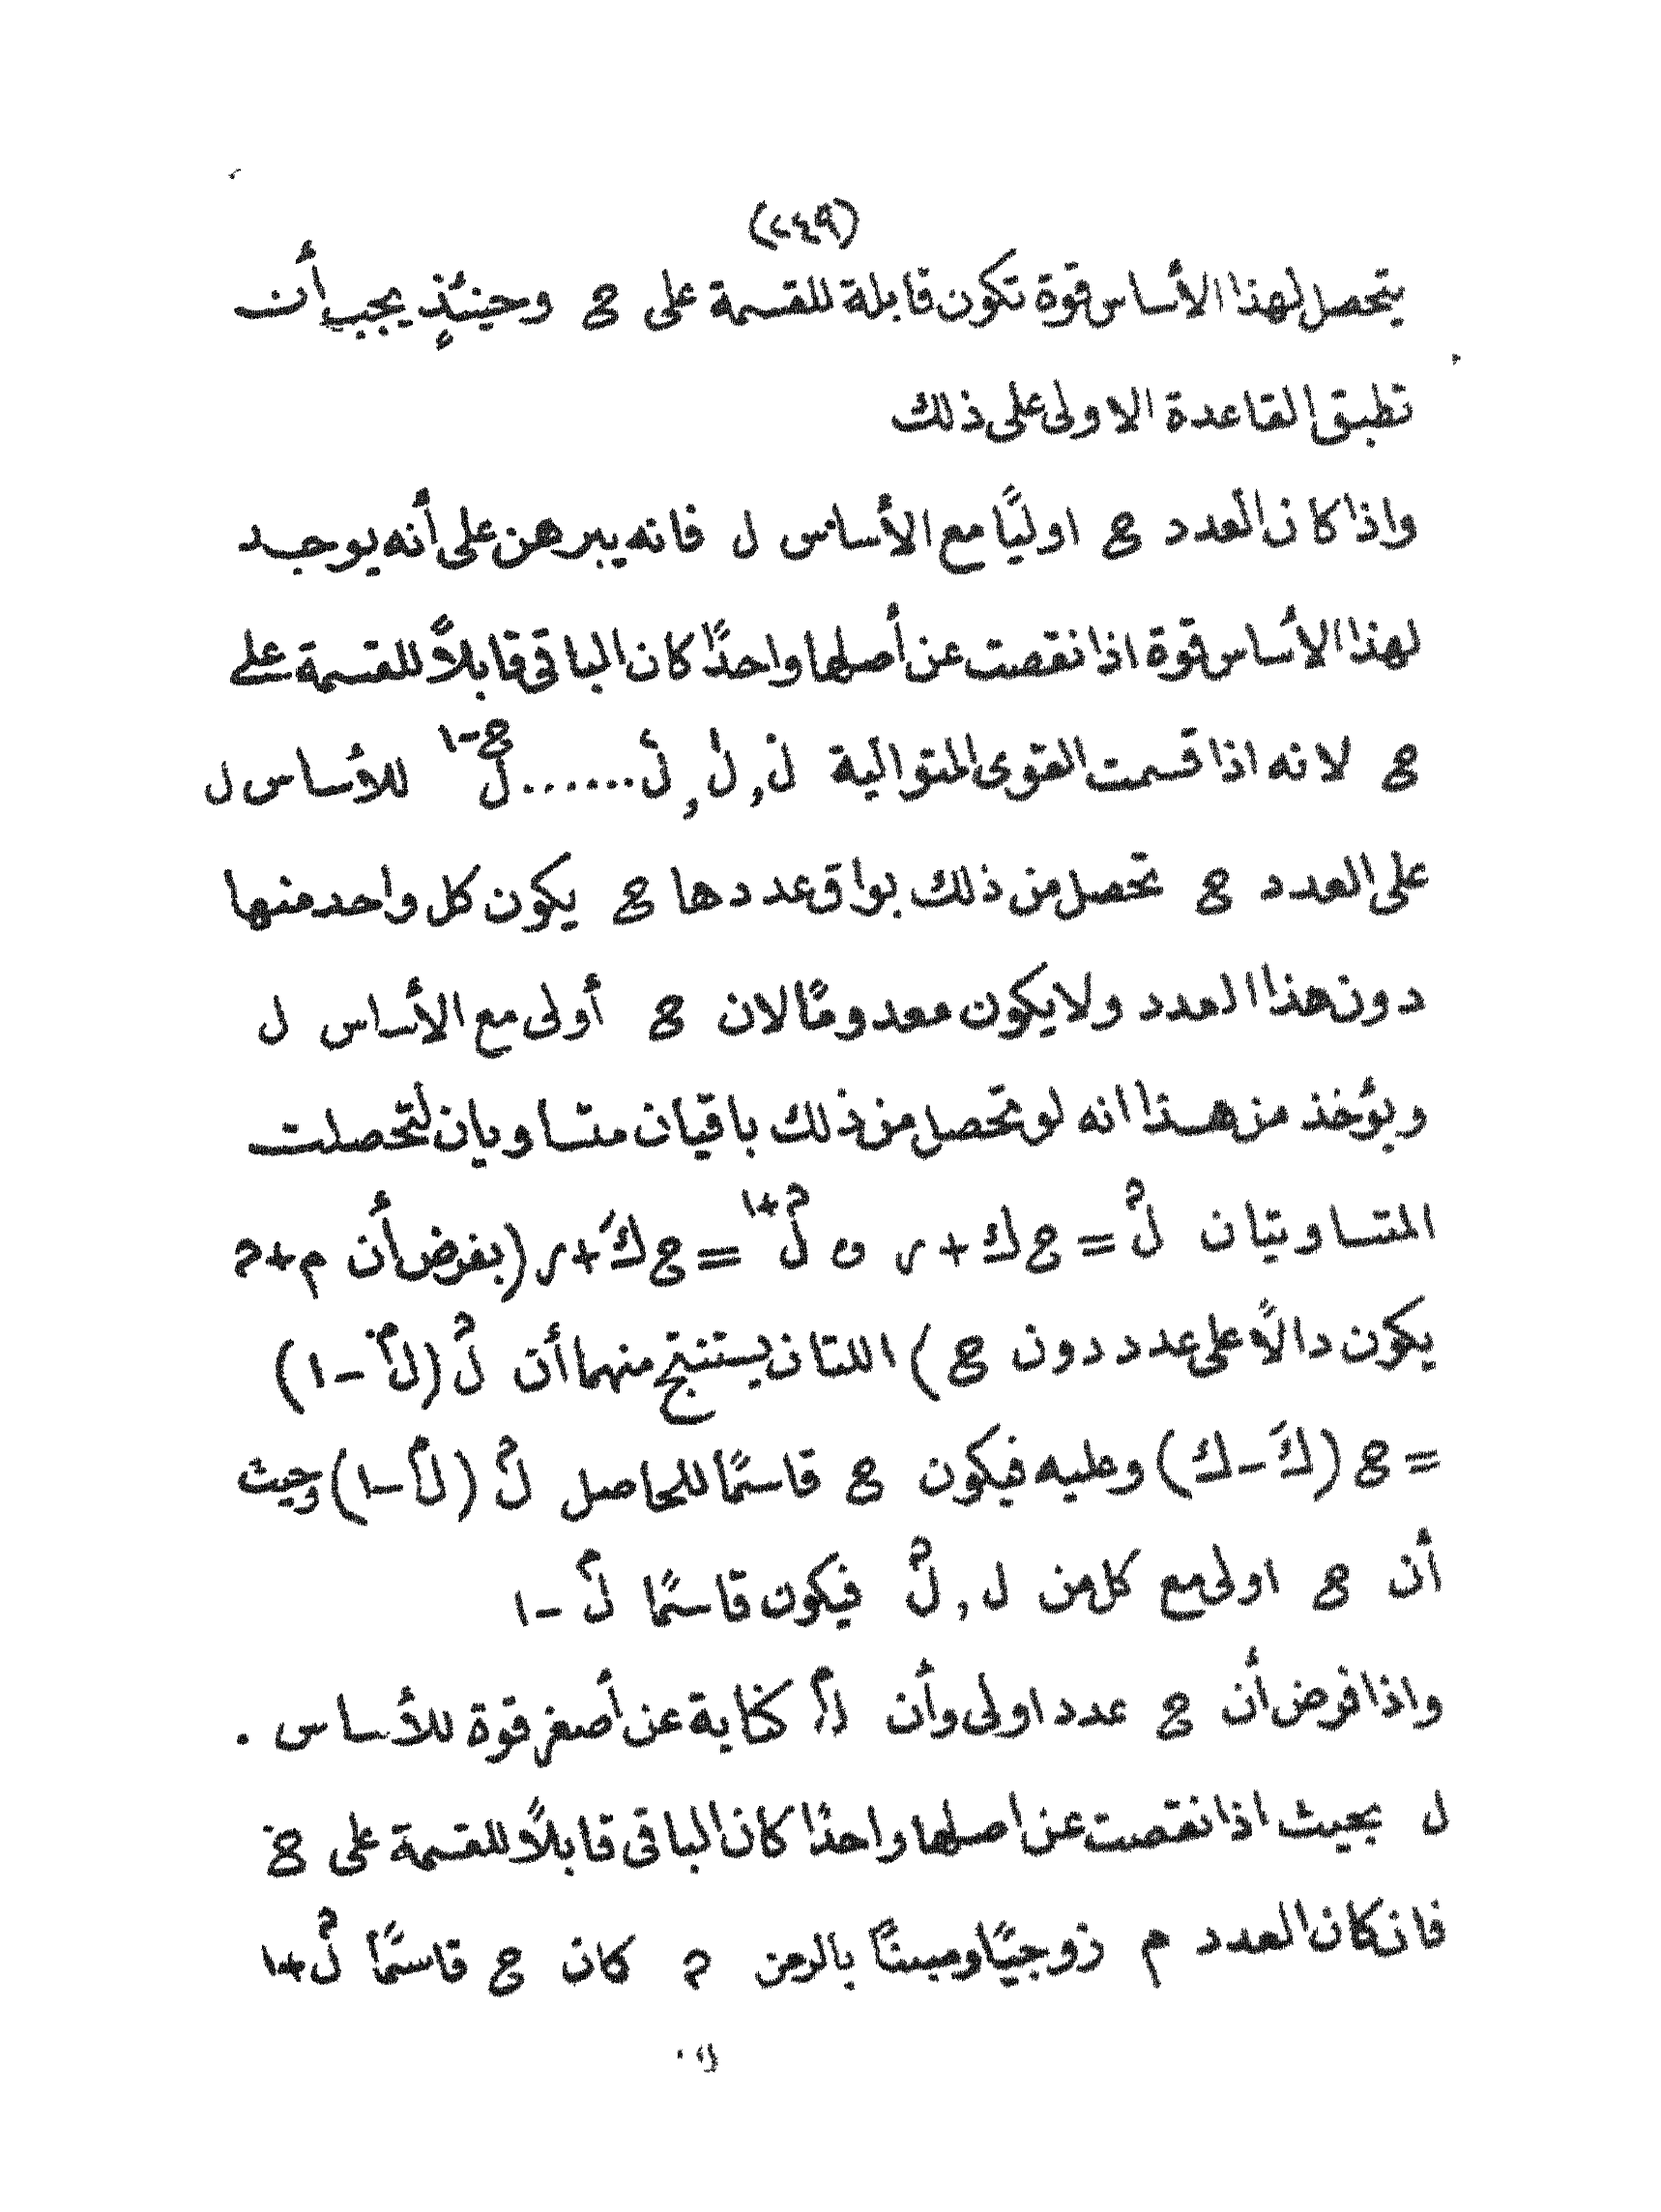 (٢٤٩)
يتحصل لهذا الأساس قوة تكون قابلة للقسمة على ج وحينئذٍ يجب أن
تطبق القاعدة الاولى على ذلك
واذا كان العدد ج اوليًّا مع الأساس ل فانه يبرهن على أنه يوجد
لهذا الأساس قوة اذا نقصت عن أصلها واحدًا كان الباقى قابلاً للقسمة على
ج لانه اذا قسمت القوى المتوالية ل٠, ل١, ل٢......ل ج-١ للأساس ل
على العدد ج تحصل من ذلك بواقى عددها ج يكون كل واحد منها
دون هذا العدد ولا يكون معدومًا لان ج أولى مع الأساس ل
ويؤخذ من هذا انه لو تحصل من ذلك باقيان متساويان لتحصلت
المتساويتان ل^ﮞ = ج ك + ر و ل^م+ﮞ = ج كَ + ر (بفرض أن م+ﮞ
يكون دالاًّ على عدد دون ج) اللتان يستنتج منهما أن ل^ﮞ (ل^م - ١)
= ج (كَ - ك) وعليه فيكون ج قاسمًا للحاصل ل^ﮞ (ل^م - ١) وحيث
أن ج اولى مع كل من ل , ل^ﮞ فيكون قاسمًا ل^م - ١
واذا فرض أن ج عدد اولى وأن ل^م كناية عن أصغر قوة للأساس
ل بحيث اذا نقصت عن اصلها واحدًا كان الباقى قابلاً للقسمة على ج
فان كان العدد م زوجيًّا ومبينًا بالرمز ٢ﮞ كان ج قاسمًا ل^ﮞ + ١